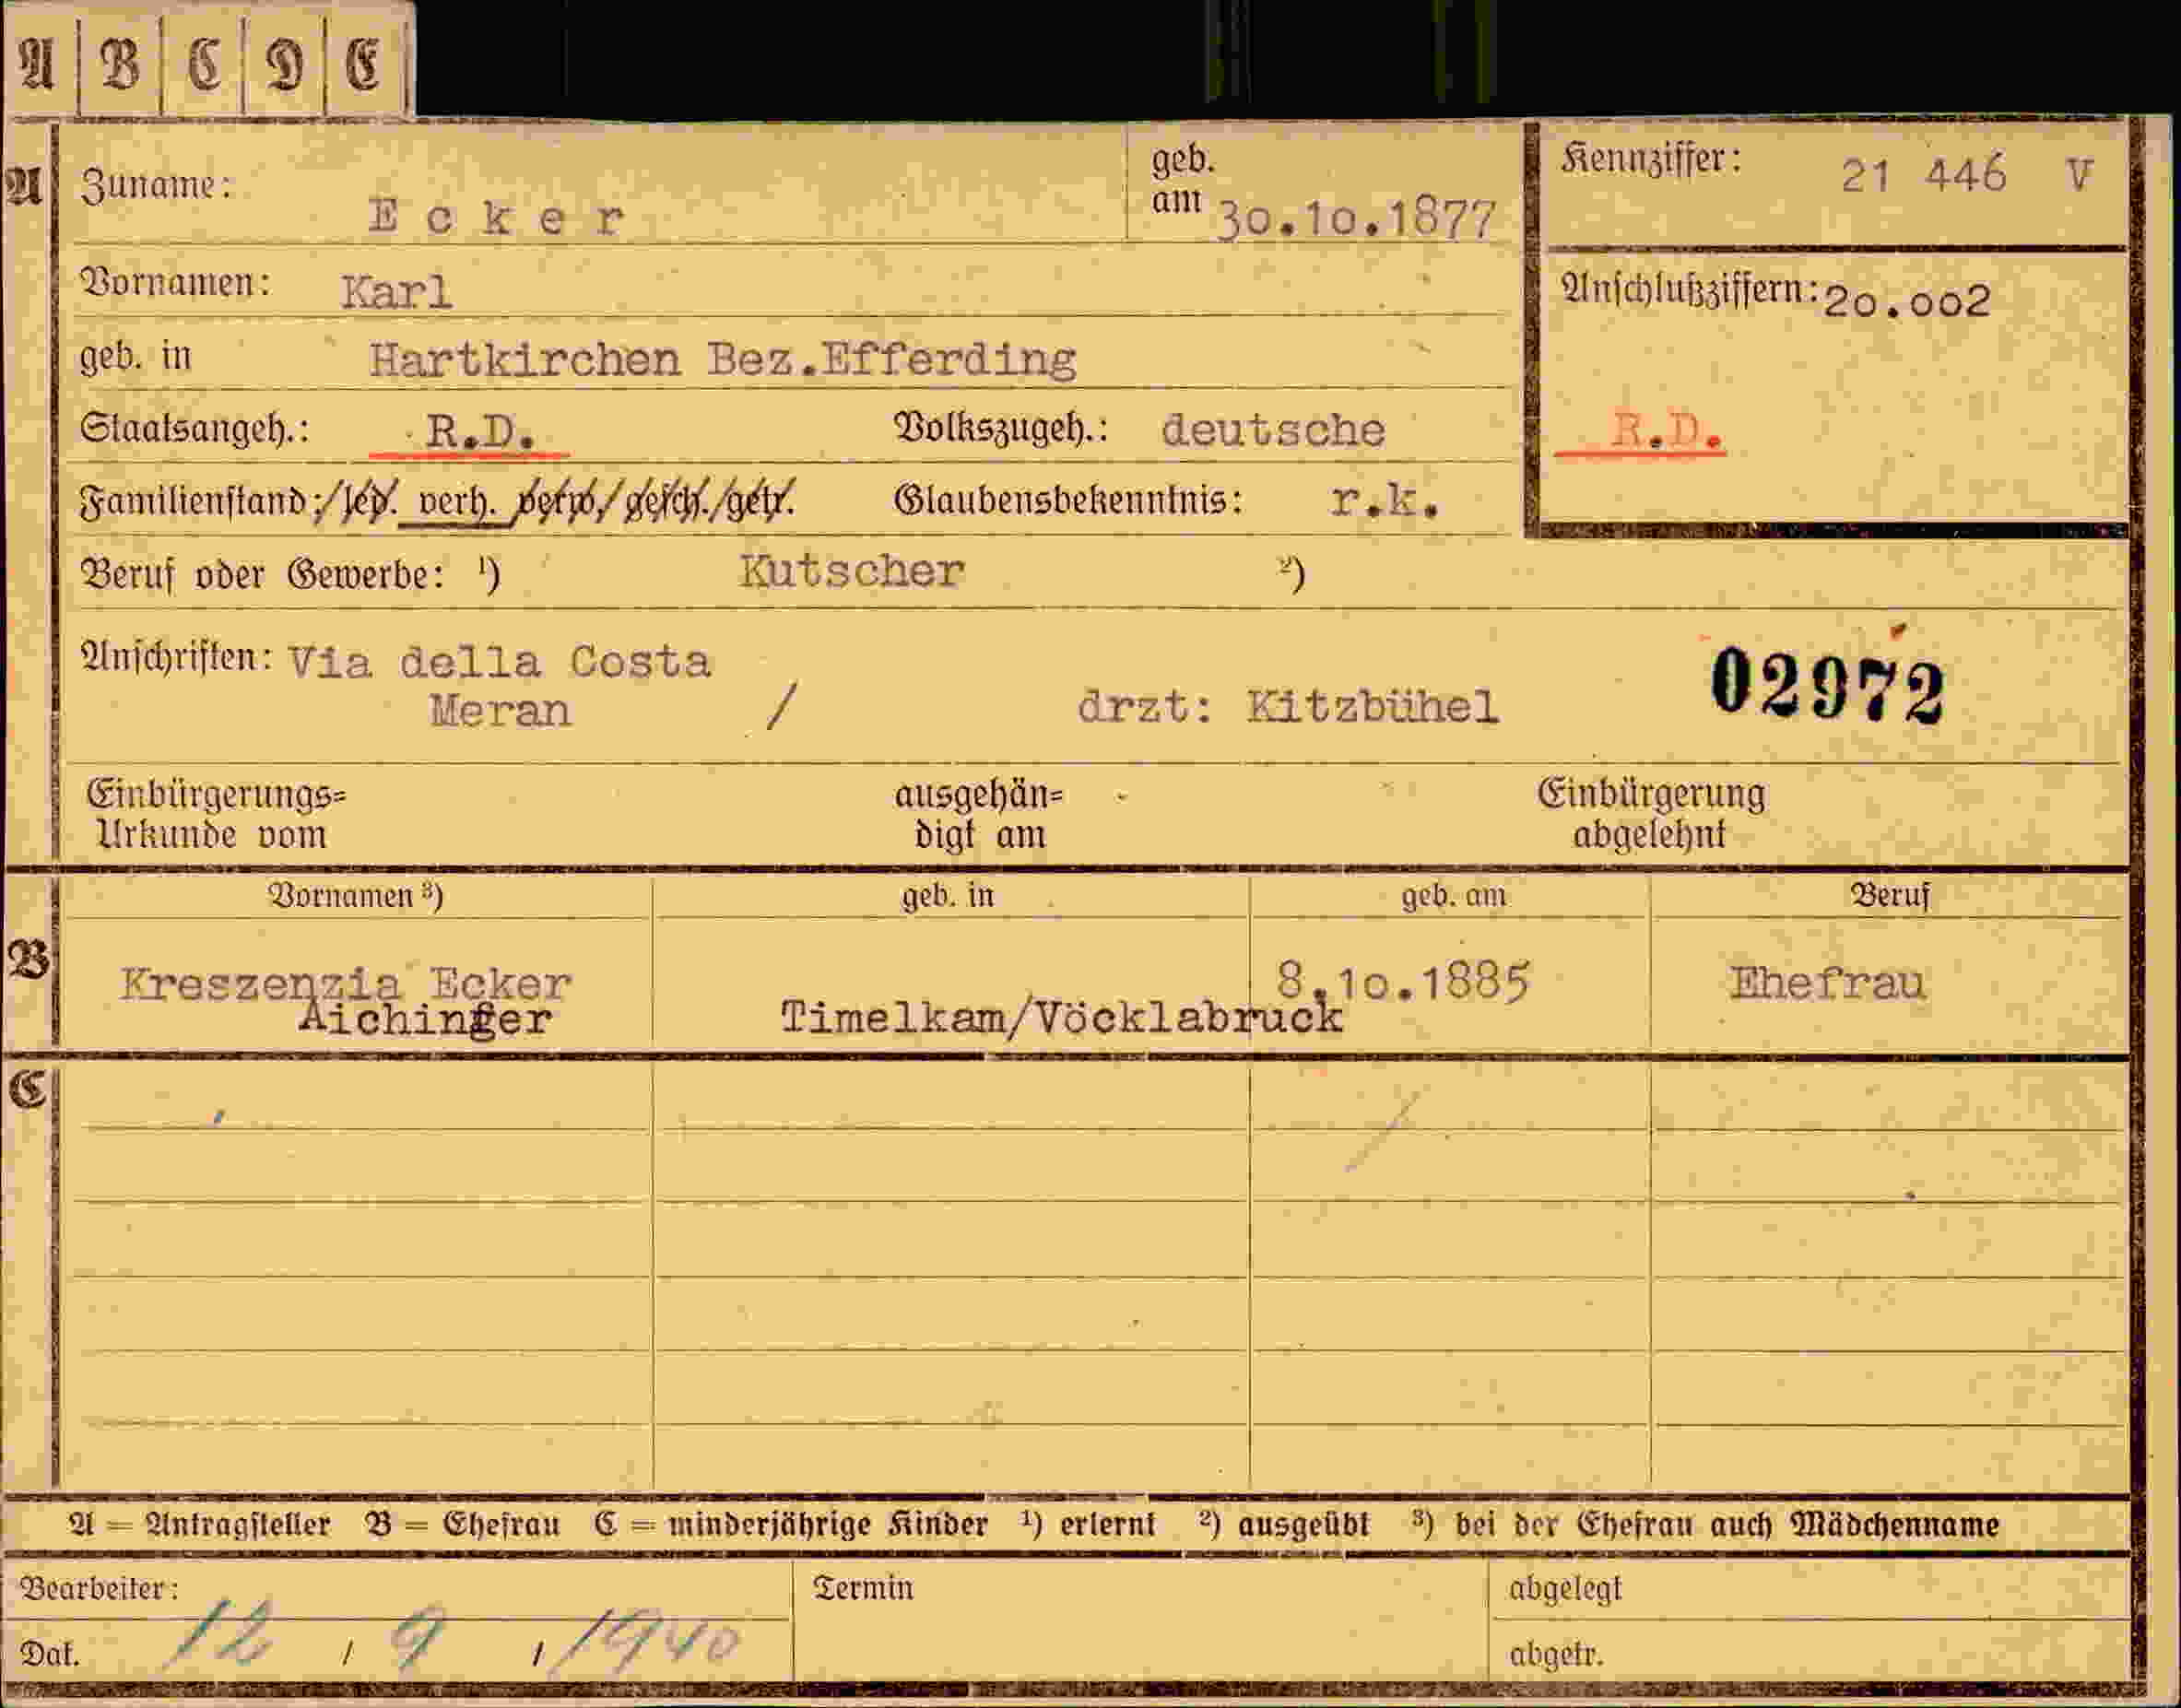 A B C D E
A Zuname: Ecker geb. am 30.10.1877 Kennziffer: 21 446 V
Vornamen: Karl Anschlußziffern: 20.002
geb. in Hartkirchen Bez.Efferding
Staatsangeh.: R.D. Volkszugeh.: deutsche R.D.
Familienstand: led. verh. verw. gesch. getr. Glaubensbekenntnis: r.k.
Beruf oder Gewerbe: ¹) Kutscher ²)
Anschriften: Via della Costa 02972
Meran / drzt: Kitzbühel
Einbürgerungs= ausgehän= Einbürgerung
Urkunde vom digt am abgelehnt
Vornamen ³) geb. in geb. am Beruf
B Kreszenzia Ecker 8.10.1885 Ehefrau
Aichinger Timelkam/Vöcklabruck
C
A = Antragsteller B = Ehefrau C = minderjährige Kinder ¹) erlernt ²) ausgeübt ³) bei der Ehefrau auch Mädchenname
Bearbeiter: Termin abgelegt
Dat. 12 / 9 / 1940 abgetr.